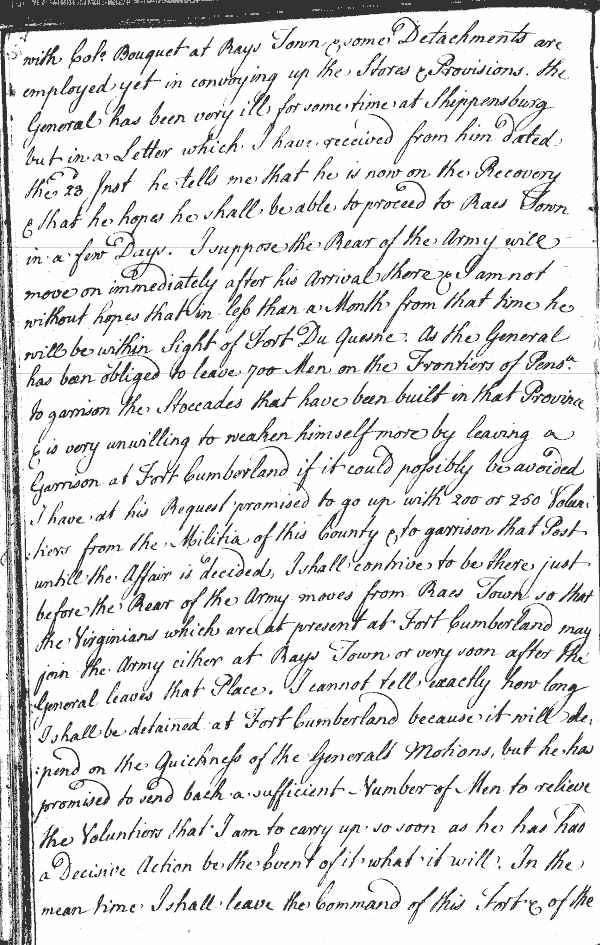 with Colo. Bouquet at Rays Town & some Detachments are
employed yet in convoying up the Stores & Provisions. the
General has been very ill for some time at Shippensburg
but in a Letter which I have received from him dated
the 23d Inst he tells me that he is now on the Recovery
& that he hopes he shall be able to proceed to Raes Town
in a few Days. I suppose the Rear of the Army will
move on immediately after his Arrival there & I am not
without hopes that in less than a Month from that time he
will be within Sight of Fort Du Quesne. As the General
has been obliged to leave 700 Men on the Frontiers of Pensa.
to garrison the Stoccades that have been built in that Province
& is very unwilling to weaken himself more by leaving a
Garrison at Fort Cumberland if it could possibly be avoided
I have at his Request promised to go up with 200 or 250 Volun
:tiers from the Militia of this County & to garrison that Post
untill the Affair is decided, I shall contrive to be there just
before the Rear of the Army moves from Raes Town so that
the Virginians which are at present at Fort Cumberland may
join the Army either at Rays Town or very soon after the
General leaves that Place. I cannot tell exactly how long
I shall be detained at Fort Cumberland because it will de:
:pend on the Quickness of the Generals Motions, but he has
promised to send back a sufficient Number of Men to relieve
the Voluntiers that I am to carry up so soon as he has had
a Decisive Action be the Event of it what it will. In the
mean time I shall leave the Command of this Fort & of the